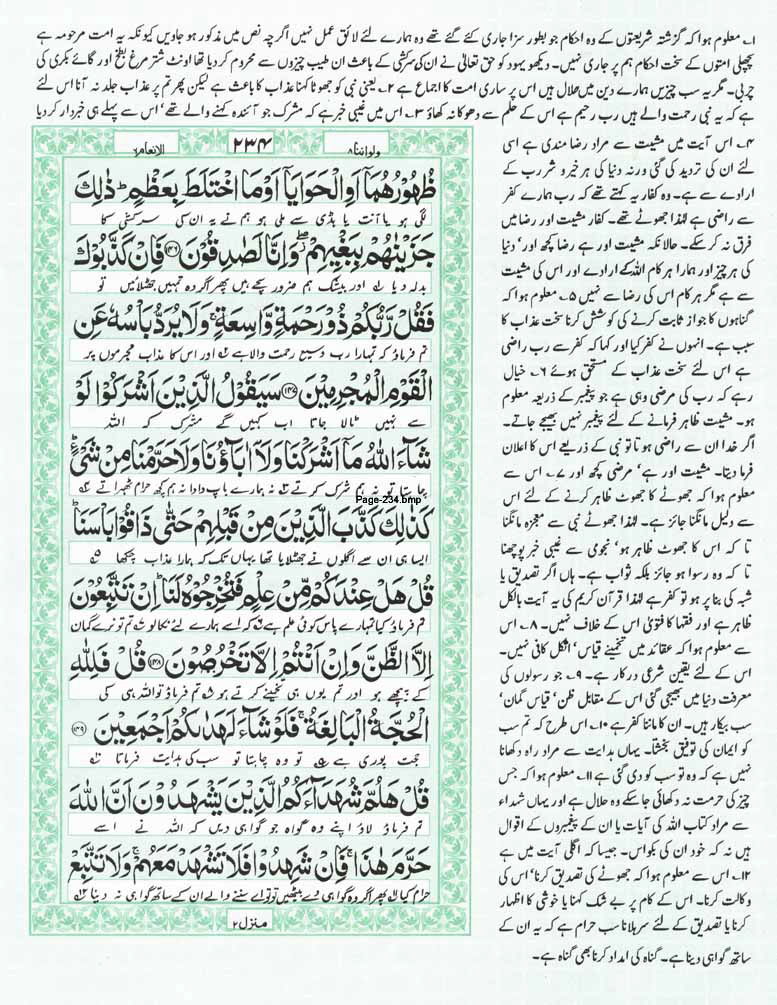 ۱۔ معلوم ہوا کہ گزشتہ شریعتوں کے وہ احکام جو بطور سزا جاری کئے گئے تھے وہ ہمارے لئے لائق عمل نہیں اگرچہ نص میں مذکور ہو جاویں کیونکہ یہ امت مرحومہ ہے
پچھلی امتوں کے سخت احکام ہم پر جاری نہیں۔ دیکھو یہود کو حق تعالیٰ نے ان کی سرکشی کے باعث ان طیب چیزوں سے محروم کر دیا تھا اونٹ شتر مرغ بطخ اور گائے بکری کی
چربی۔ مگر یہ سب چیزیں ہمارے دین میں حلال ہیں اس پر ساری امت کا اجماع ہے ۲۔ یعنی نبی کو جھوٹا کہنا عذاب کا باعث ہے لیکن پھر تم پر عذاب جلد نہ آنا اس لئے
ہے کہ یہ نبی رحمت والے ہیں رب رحیم ہے اس کے حلم سے دھوکا نہ کھاؤ ۳۔ اس میں غیبی خبر ہے کہ مشرک جو آئندہ کہنے والے تھے' اس سے پہلے ہی خبردار کر دیا
۴۔ اس آیت میں مشیت سے مراد رضا مندی ہے اسی
لئے ان کی تردید کی گئی ورنہ دنیا کی ہر خیر و شر رب کے
ارادے سے ہے۔ وہ کفار یہ کہتے تھے کہ رب ہمارے کفر
سے راضی ہے لہذا جھوٹے تھے۔ کفار مشیت اور رضا میں
فرق نہ کر سکے۔ حالانکہ مشیت اور ہے رضا کچھ اور' دنیا
کی ہر چیز اور ہمارا ہر کام اللہ کے ارادے اور اس کی مشیت
سے ہے مگر ہر کام اس کی رضا سے نہیں ۵۔ معلوم ہوا کہ
گناہوں کا جواز ثابت کرنے کی کوشش کرنا سخت عذاب کا
سبب ہے۔ انہوں نے کفر کیا اور کہا کہ کفر سے رب راضی
ہے اس لئے سخت عذاب کے مستحق ہوئے ۶۔ خیال
رہے کہ رب کی مرضی وہی ہے جو پیغمبر کے ذریعہ معلوم
ہو۔ مشیت ظاہر فرمانے کے لئے پیغمبر نہیں بھیجے جاتے۔
اگر خدا ان سے راضی ہوتا تو نبی کے ذریعے اس کا اعلان
فرما دیتا۔ مشیت اور ہے' مرضی کچھ اور ۷۔ اس سے
معلوم ہوا کہ جھوٹے کا جھوٹ ظاہر کرنے کے لئے اس
سے دلیل مانگنا جائز ہے۔ لہذا جھوٹے نبی سے معجزہ مانگنا
تا کہ اس کا جھوٹ ظاہر ہو' نجومی سے غیبی خبر پوچھنا
تا کہ وہ رسوا ہو جائز بلکہ ثواب ہے۔ ہاں اگر تصدیق یا
شبہ کی بنا پر ہو تو کفر ہے لہذا قرآن کریم کی یہ آیت بالکل
ظاہر ہے اور فقہا کا فتویٰ اس کے خلاف نہیں۔ ۸۔ اس
سے معلوم ہوا کہ عقائد میں تخمینے قیاس' اٹکل کافی نہیں۔
اس کے لئے یقین شرعی درکار ہے۔ ۹۔ جو رسولوں کی
معرفت دنیا میں بھیجی گئی اس کے مقابل ظن' قیاس گمان'
سب بیکار ہیں۔ ان کا ماننا کفر ہے ۱۰۔ اس طرح کہ تم سب
کو ایمان کی توفیق بخشتا۔ یہاں ہدایت سے مراد راہ دکھانا
نہیں ہے کہ وہ تو سب کو دی گئی ہے ۱۱۔ معلوم ہوا کہ جس
چیز کی حرمت نہ دکھائی جا سکے وہ حلال ہے اور یہاں شہداء
سے مراد کتاب اللہ کی آیات یا ان کے پیغمبروں کے اقوال
ہیں نہ کہ خود ان کی بکواس۔ جیسا کہ اگلی آیت میں ہے
۱۲۔ اس سے معلوم ہوا کہ جھوٹے کی تصدیق کرنا' اس کی
وکالت کرنا۔ اس کے کام پر بے شک کہنا یا خوشی کا اظہار
کرنا یا تصدیق کے لئے سر ہلانا سب حرام ہے کہ یہ ان کے
ساتھ گواہی دینا ہے۔ گناہ کی امداد کرنا بھی گناہ ہے۔
ولواننا۸ ۲۳۴ الانعام۶
ظُهُوْرُهُمَاۤ اَوِ الْحَوَايَاۤ اَوْ مَا اخْتَلَطَ بِعَظْمٍ ؕ ذٰلِكَ
لگی ہو یا آنت یا ہڈی سے ملی ہو ہم نے یہ ان کی سرکشی کا
جَزَيْنٰهُمْ بِبَغْيِهِمْ ۖ وَاِنَّا لَصٰدِقُوْنَ ﴿۱۴۶﴾ فَاِنْ كَذَّبُوْكَ
بدلہ دیا ۱ اور بیشک ہم ضرور سچے ہیں پھر اگر وہ تمہیں جھٹلائیں تو
فَقُلْ رَّبُّكُمْ ذُوْ رَحْمَةٍ وَّاسِعَةٍ ۚ وَلَا يُرَدُّ بَاْسُهٗ عَنِ
تم فرماؤ کہ تمہارا رب وسیع رحمت والا ہے ۲ اور اس کا عذاب مجرموں پر
الْقَوْمِ الْمُجْرِمِيْنَ ﴿۱۴۷﴾ سَيَقُوْلُ الَّذِيْنَ اَشْرَكُوْا لَوْ
سے نہیں ٹالا جاتا اب کہیں گے مشرک کہ اللہ
شَآءَ اللّٰهُ مَاۤ اَشْرَكْنَا وَلَاۤ اٰبَآؤُنَا وَلَا حَرَّمْنَا مِنْ شَیْءٍ ؕ
چاہتا تو نہ ہم شرک کرتے ۳ نہ ہمارے باپ دادا نہ ہم کچھ حرام ٹھہراتے ۴
Page-234.bmp
كَذٰلِكَ كَذَّبَ الَّذِيْنَ مِنْ قَبْلِهِمْ حَتّٰى ذَاقُوْا بَاْسَنَا ؕ
ایسا ہی ان سے اگلوں نے جھٹلایا تھا یہاں تک کہ ہمارا عذاب چکھا ۵
قُلْ هَلْ عِنْدَكُمْ مِّنْ عِلْمٍ فَتُخْرِجُوْهُ لَنَا ؕ اِنْ تَتَّبِعُوْنَ
تم فرماؤ کیا تمہارے پاس کوئی علم ہے ۶ کہ اسے ہمارے لئے نکالو ۷ تم تو نرے گمان
اِلَّا الظَّنَّ وَاِنْ اَنْتُمْ اِلَّا تَخْرُصُوْنَ ﴿۱۴۸﴾ قُلْ فَلِلّٰهِ
کے پیچھے ہو اور تم یوں ہی تخمینے کرتے ہو ۸ تم فرماؤ تو اللہ ہی کی
الْحُجَّةُ الْبَالِغَةُ ۚ فَلَوْ شَآءَ لَهَدٰىكُمْ اَجْمَعِيْنَ ﴿۱۴۹﴾
حجت پوری ہے ۹ تو وہ چاہتا تو سب کی ہدایت فرماتا ۱۰
قُلْ هَلُمَّ شُهَدَآءَكُمُ الَّذِيْنَ يَشْهَدُوْنَ اَنَّ اللّٰهَ
تم فرماؤ لاؤ اپنے وہ گواہ جو گواہی دیں کہ اللہ نے اسے
حَرَّمَ هٰذَا ۚ فَاِنْ شَهِدُوْا فَلَا تَشْهَدْ مَعَهُمْ ۚ وَلَا تَتَّبِعْ
حرام کیا ۱۱ پھر اگر وہ گواہی دے بیٹھیں تو تو اے سننے والے ان کے ساتھ گواہی نہ دینا ۱۲
منزل۲